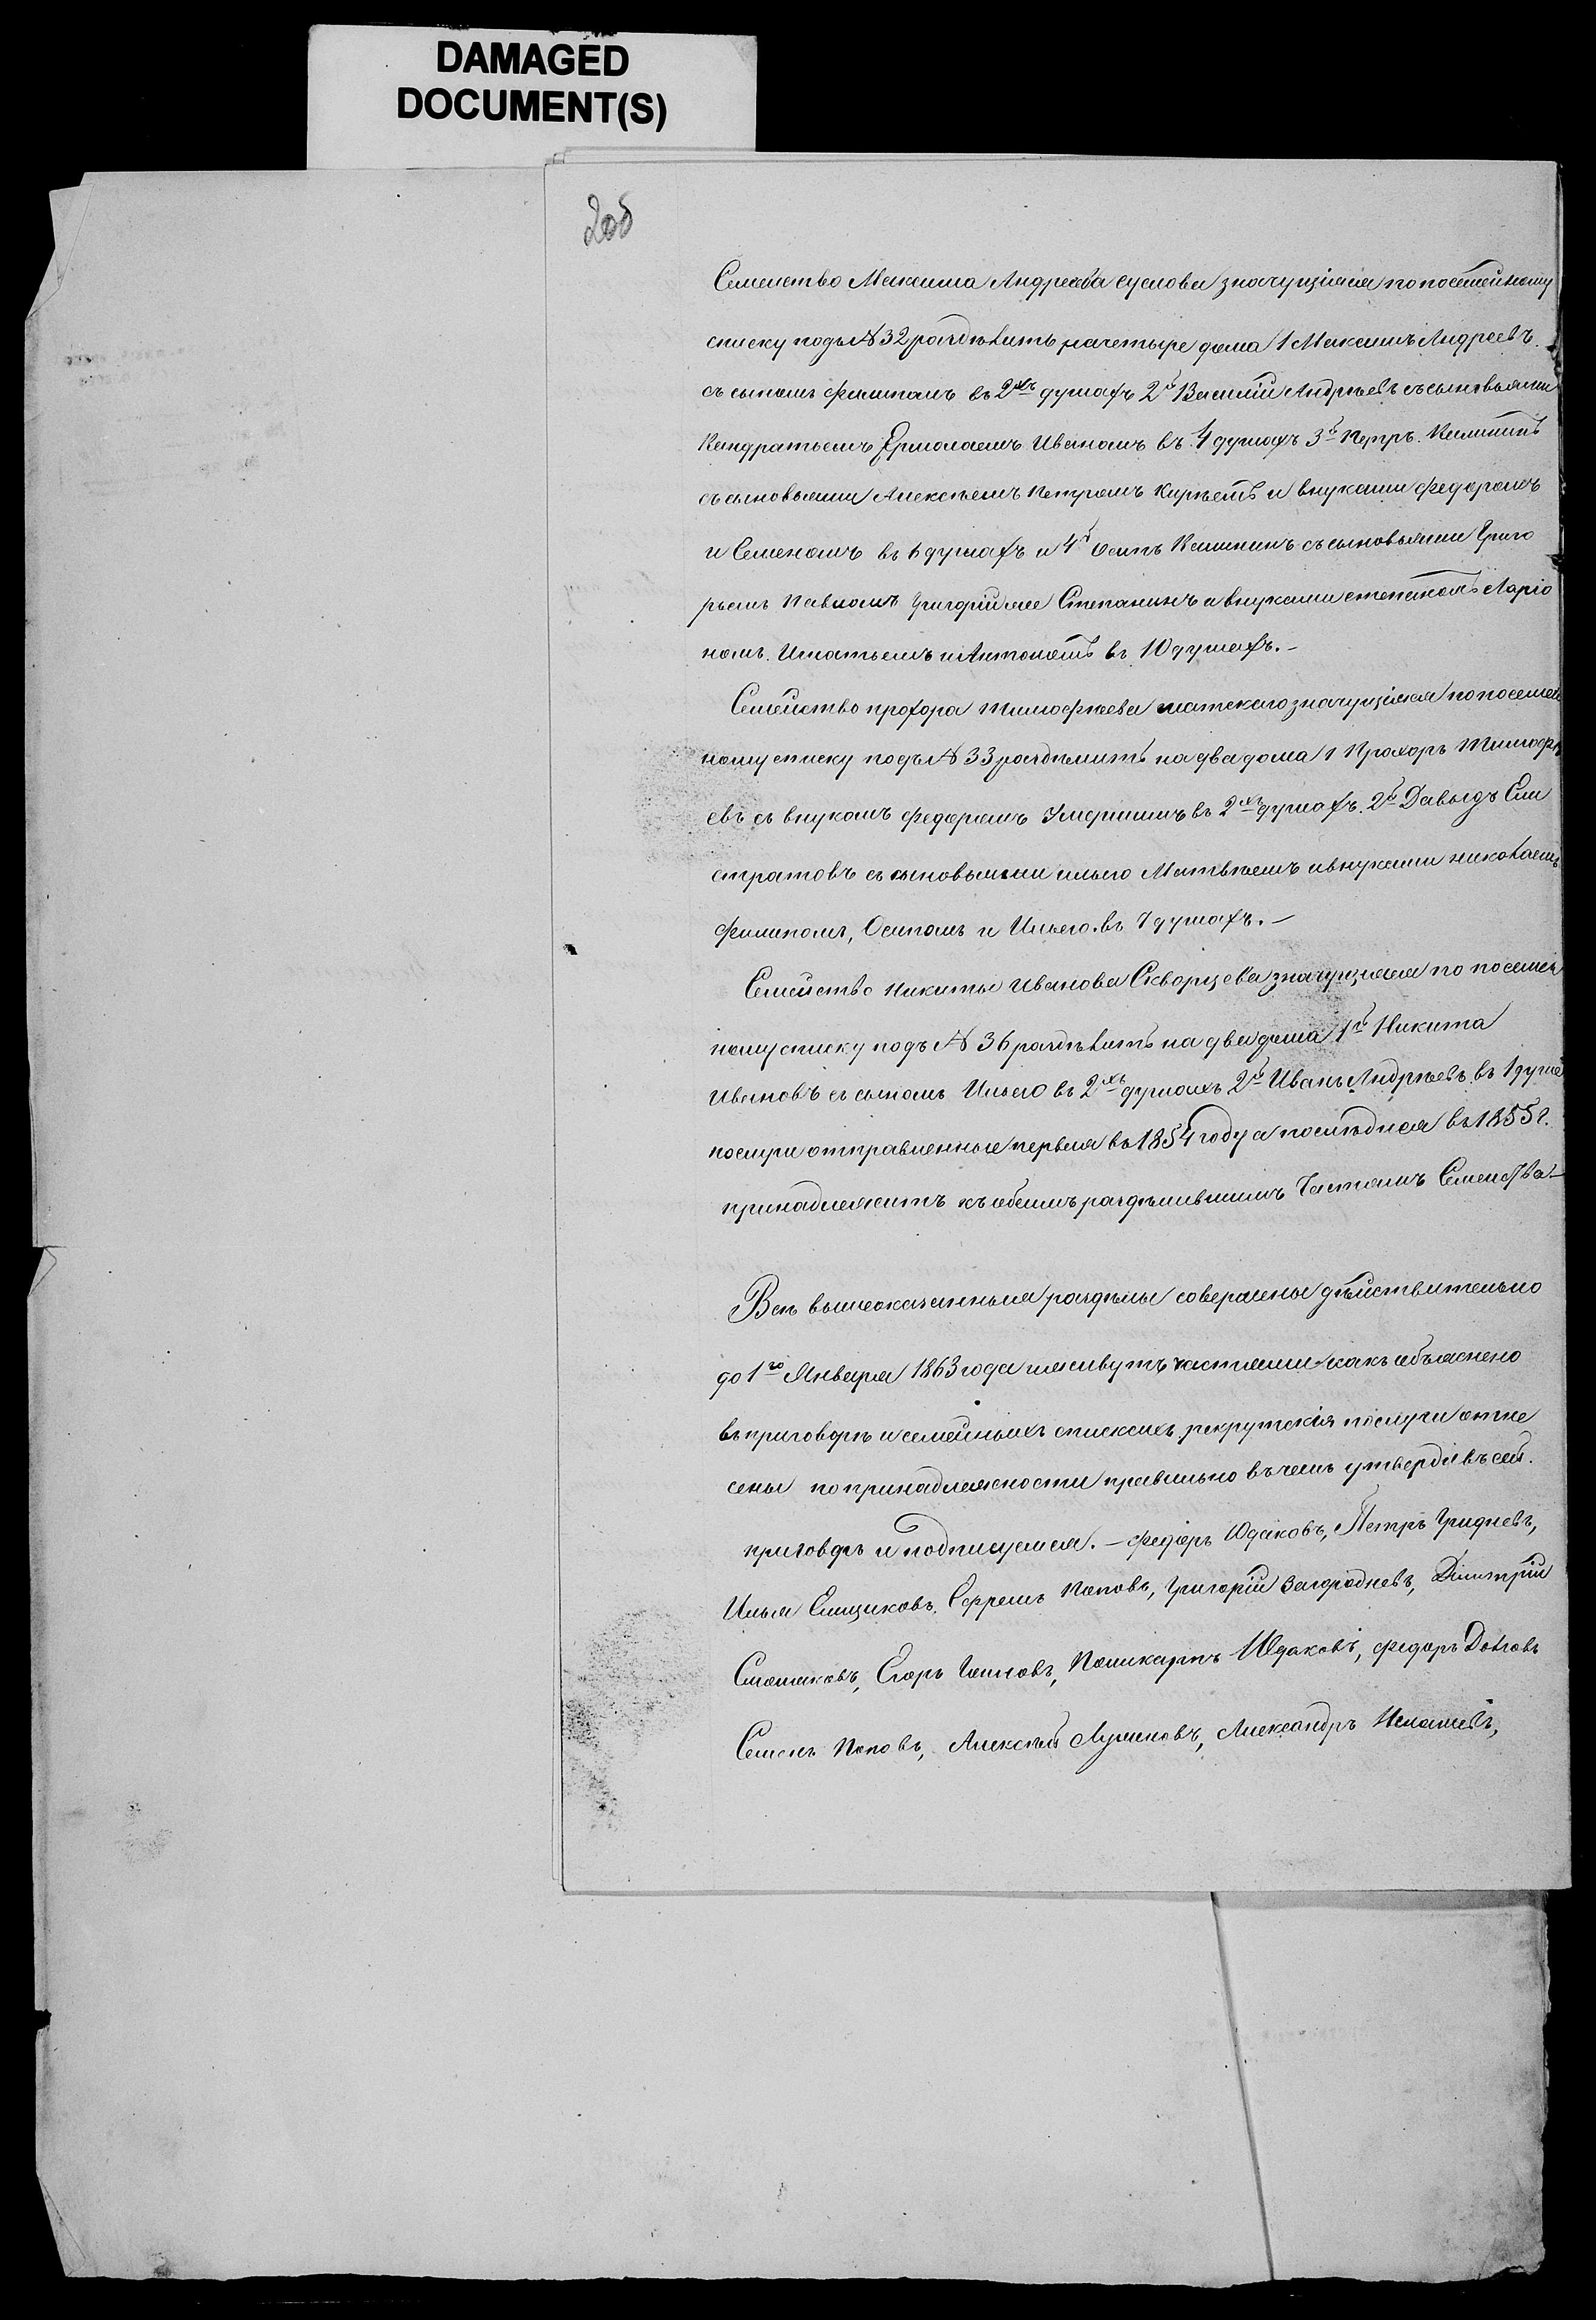 DAMAGED
DOCUMENT(S)
Семейство Максима Андреева Суслова значущіяся по посемейному
списку подъ № 32 раздѣлить на четыре дома 1 Максимъ Андреевъ
съ сыномъ Филипомъ въ 2хъ душахъ 2й Василій Андрѣевъ съ сыновьями
Кондратьемъ Ермолаемъ Иваномъ въ 4 душахъ 3й Петръ Калининъ
съ сыновьями Алексѣемъ Петромъ и внуками Федоромъ
и Семеномъ въ 6 душахъ и 4й Осипъ Калининъ съ сыновьями Григо
рьемъ Павломъ Григоріемъ и внуками степаномъ Ларіо
номъ. Игнатьемъ и Антономъ въ 10 душахъ. -
Семейство прохора тимофѣева значущіяся по посемей
ному списку подъ № 33 раздѣлить на два дома 1 Прохоръ Тимофѣ
евъ съ внукомъ Федоромъ въ 2хъ душахъ. 2й Давыдъ Ели
стратовъ съ сыновьями ильею Матвѣемъ и внуками николаемъ
Филипомъ, Осипомъ и Ильею. въ 7 душахъ. -
Семейство Никиты Иванова Скворцова значущіяся по посемей
ному списку подъ № 36 раздѣлить на два дома 1й Никита
Ивановъ съ сыномъ Ильею въ 2хъ душахъ 2й Иванъ Андрѣевъ въ 1 душѣ
послуги отправленные первая въ 1854 году а послѣдняя въ 1855 г.
принадлежитъ къ обеимъ раздѣлившимъ Частямъ Семейства -
Всѣ вышеоказанныя раздѣлы совершены дѣйствительно
до 1го Января 1863 года и живутъ частями какъ объяснено
въ приговорѣ и семейныхъ спискахъ рекрутскія послуги отне
сены по принадлежности правильно въ чемъ утвердивъ сей
приговоръ и подписуемся. - Федоръ Юдаковъ, Петръ Гридневъ,
Илья Ямщиковъ, Ефремъ Поповъ, Григорій Загородневъ, Дмитрій
Егоръ Поликарпъ Юдаковъ, Федоръ Долговъ
Семенъ Поповъ, Алексѣй Александръ